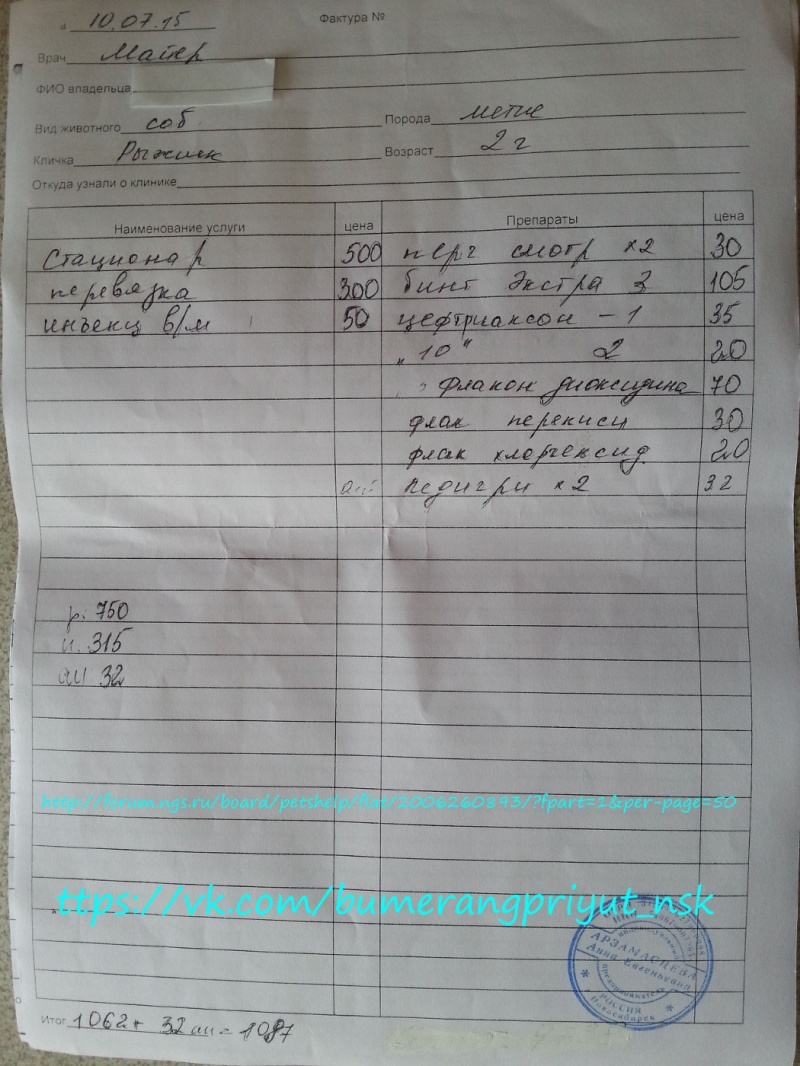 10.07.15 Фактура №
Врач Майер
ФИО владельца
Вид животного соб. Порода метис
Кличка Рыжик Возраст 2 г
Откуда узнали о клинике
Наименование услуги цена Препараты цена
Стационар 500 перч смотр x2 30
перевязка 300 бинт Экстра 3 105
инъекц в/м 50 цефтриаксон - 1 35
"10" 2 20
флакон диоксидина 70
флак перекиси 30
флак хлоргексид 20
педигри x2 32
р: 750
и. 315
ап 32
http://forum.ngs.ru/board/petshelp/flat/2006260893/?fpart=1&per-page=50
ttps://vk.com/bumerangpriyut_nsk
АРЗАМАСЦЕВА
Анна Евгеньевна
предприниматель
РОССИЯ
г. Новосибирск
Итог 1062+ 32 ап = 1087